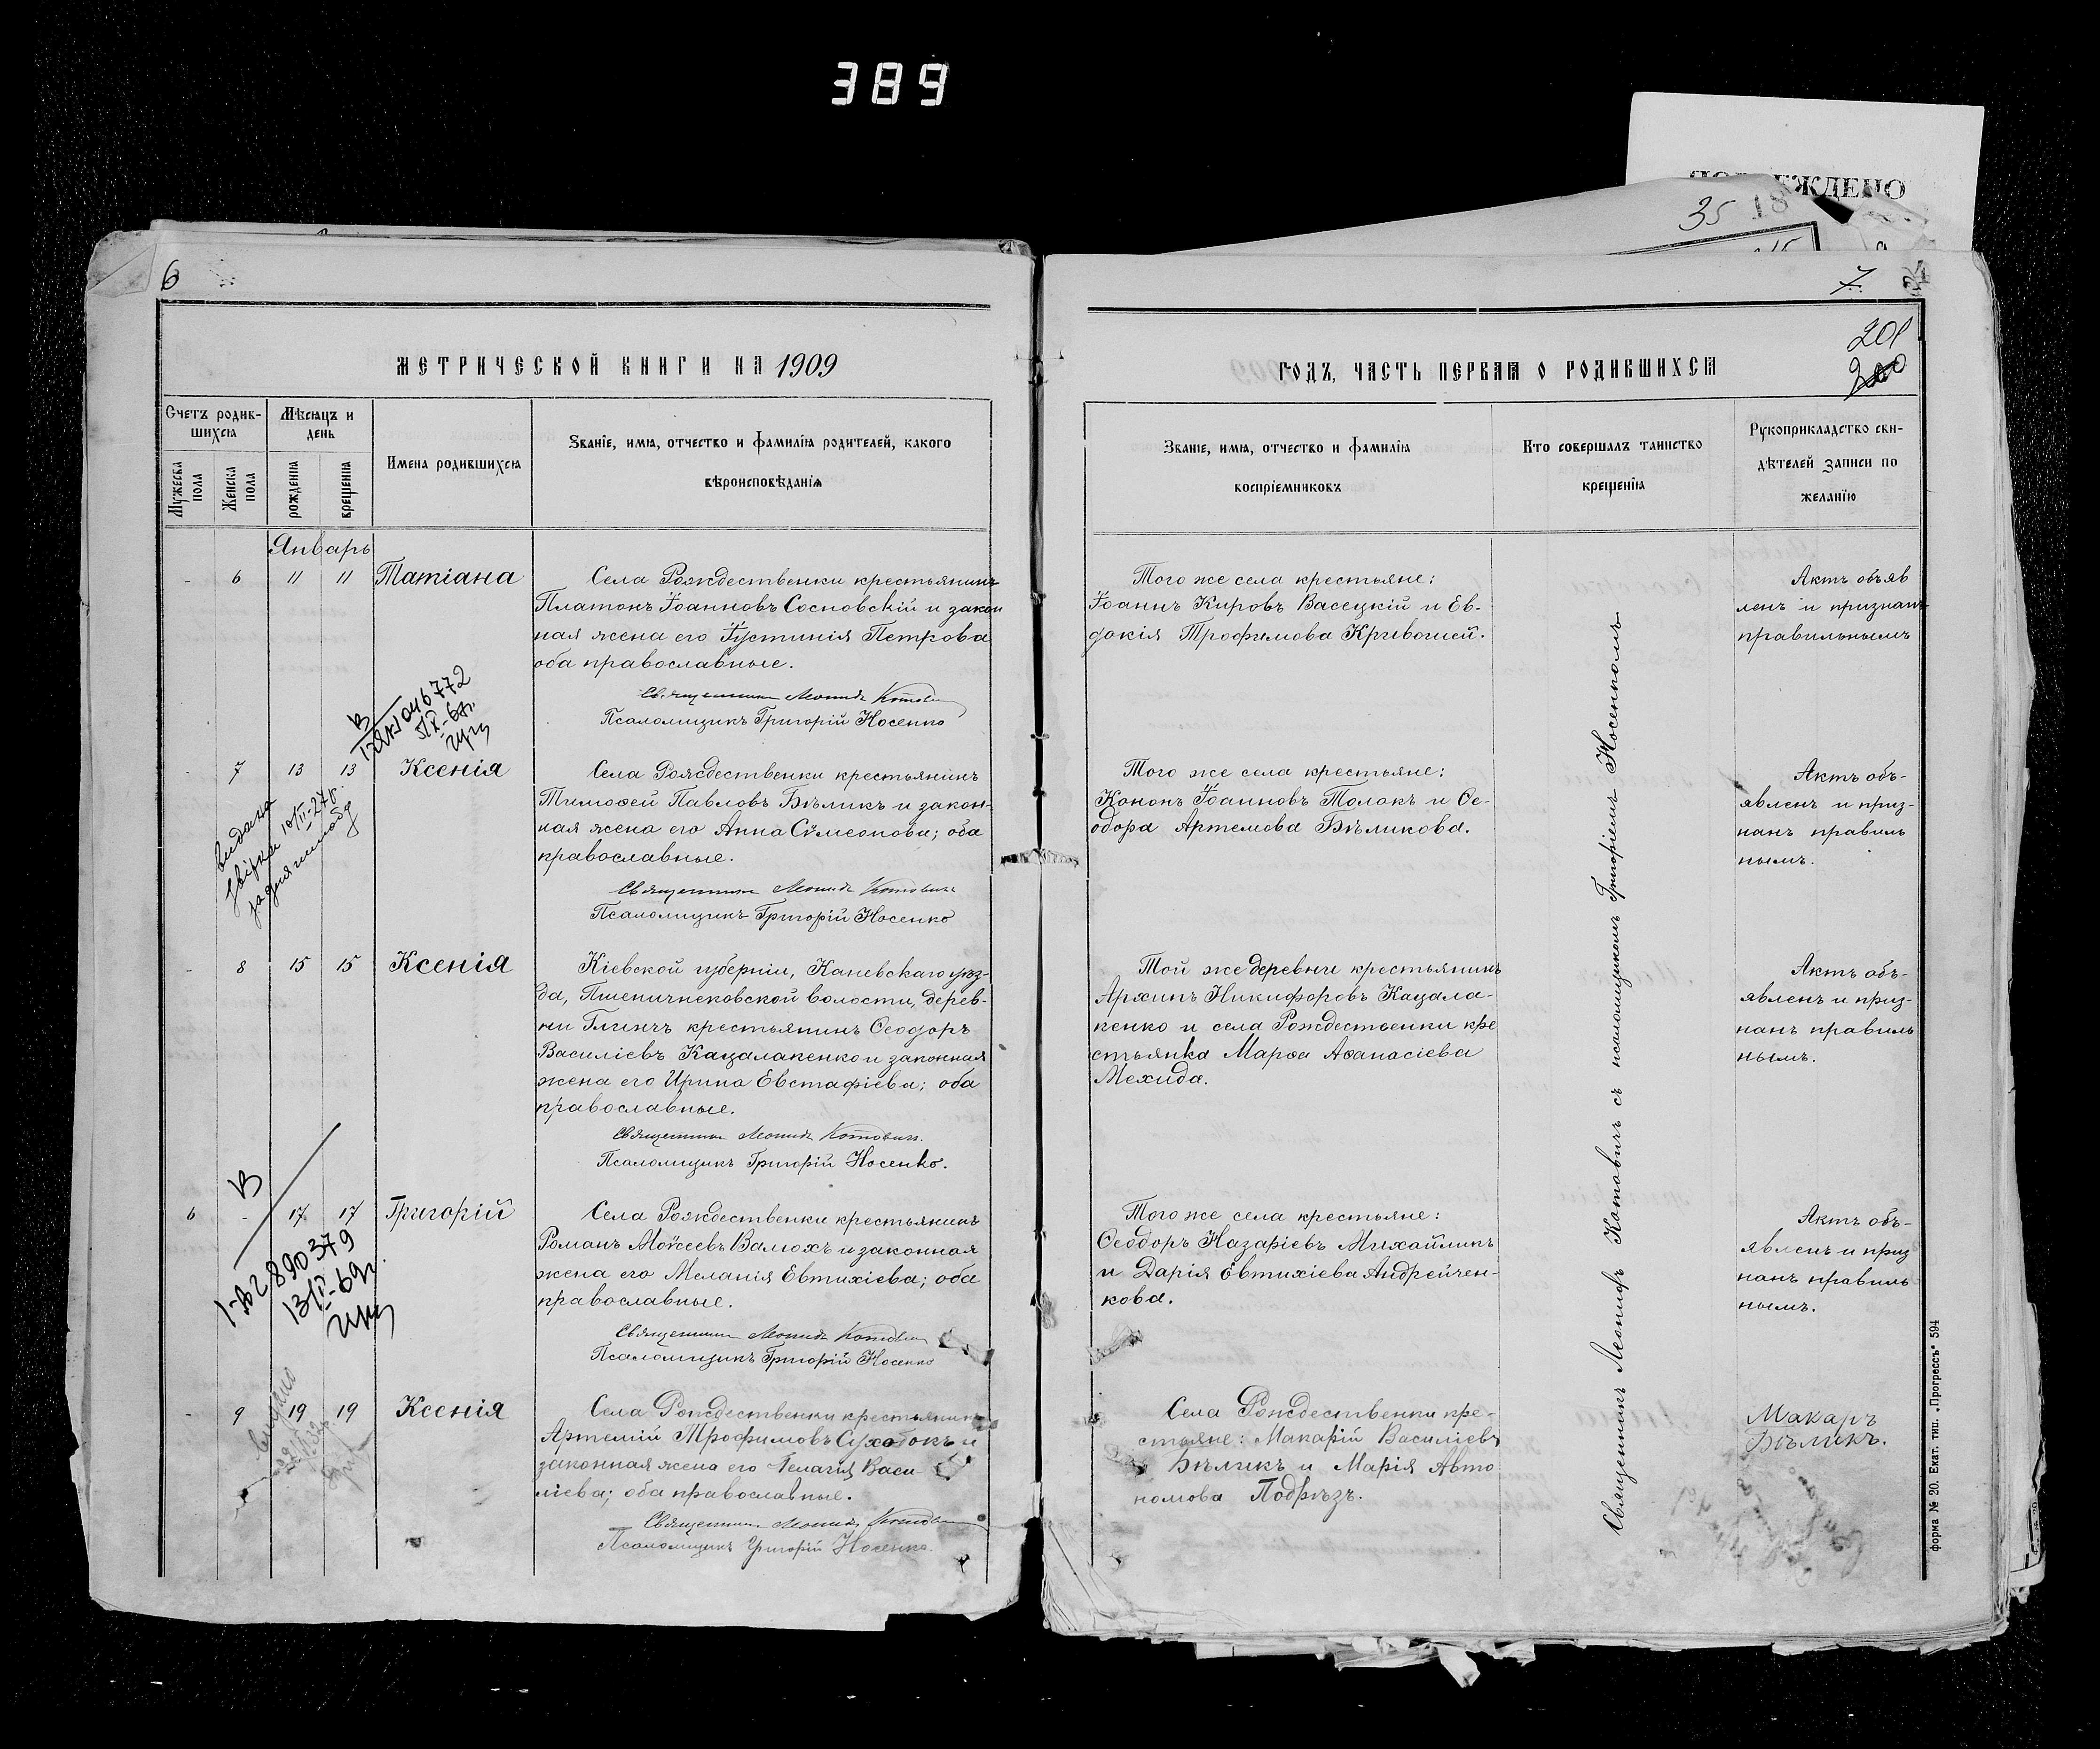 389
35 18
ЖДЕНО
6
МЕТРИЧЕСКОЙ КНИГИ НА 1909
Счетъ родив-
шихся
Мѣсяцъ и
день
Мужеска
пола
Женска
пола
рожденія
крещенія
Имена родившихся
Званіе, имя, отчество и фамилія родителей, какого
вѣроисповѣданія
Январь
- 6 11 11 Татіана
Села Рождественки крестьянинъ
Платонъ Іоанновъ Сосновскій и закон
ная жена его Іустинія Петрова
оба православные.
Священникъ Леонидъ Котович
Псаломщикъ Григорій Носенко
В
046772
- 7 13 13 Ксенія
Села Рождественки крестьянинъ
Тимоѳей Павловъ Бѣликъ и закон-
ная жена его Анна Сѵмеонова; оба
православные.
Священникъ Леонидъ Котовичъ
Псаломщикъ Григорій Носенко
видана
- 8 15 15 Ксенія
Кіевской губерніи, Каневскаго уѣз-
да, Пшеничнековской волости, дерев-
ни Глинчъ крестьянинъ Ѳеодоръ
Василіевъ Кацалакенко и законная
жена его Ирина Евстафіева; оба
православные.
Священникъ Леонидъ Котовичъ.
Псаломщикъ Григорій Носенко.
В
6 - 17 17 Григорій
Села Рождественки крестьянинъ
Романъ Моѵсеевъ Валюхъ и законная
жена его Меланія Евтихіева; оба
православные.
Священникъ Леонидъ Котович
Псаломщикъ Григорій Носенко
№ 2890379
- 9 19 19 Ксенія
Села Рождественки крестьянинъ
Артемій Трофимовъ и
законная жена его Пелагія Васи-
ліева; оба православные.
Священникъ Леонидъ Котович
Псаломщикъ Григорій Носенко.
7
201
200
ГОДЪ, ЧАСТЬ ПЕРВАЯ О РОДИВШИХСЯ
Званіе, имя, отчество и фамилія
воспріемниковъ
Кто совершалъ таинство
крещенія
Рукоприкладство сви-
дѣтелей записи по
желанію
Того же села крестьяне:
Іоаннъ Кировъ Васецкій и Ев-
докія Трофимова Кривошей.
Актъ объяв
ленъ и признанъ
правильнымъ
Того же села крестьяне:
Кононъ Іоанновъ Толокъ и Ѳе-
одора Артемова Бѣликова.
Актъ объ-
явленъ и приз-
нанъ правиль
нымъ.
Той же деревни крестьянинъ
Архипъ Никифоровъ Кацала-
кенко и села Рождественки кре
стьянка Марѳа Аѳанасіева
Мехида.
Актъ объ-
явленъ и приз-
нанъ правиль
нымъ.
Того же села крестьяне:
Ѳеодоръ Назаріевъ Михайликъ
и Дарія Евтихіева Андрейчен-
кова.
Актъ объ-
явленъ и приз
нанъ правиль
нымъ.
Села Рождественки кре-
стьяне: Макарій Василіевъ
Бѣликъ и Марія Авто
номова Подрѣзъ.
Макаръ
Бѣликъ.
Священникъ Леонидъ Котовичъ съ псаломщикомъ Григоріемъ Носенкомъ
Форма № 20. Екат. тип. „Прогрессъ" 594